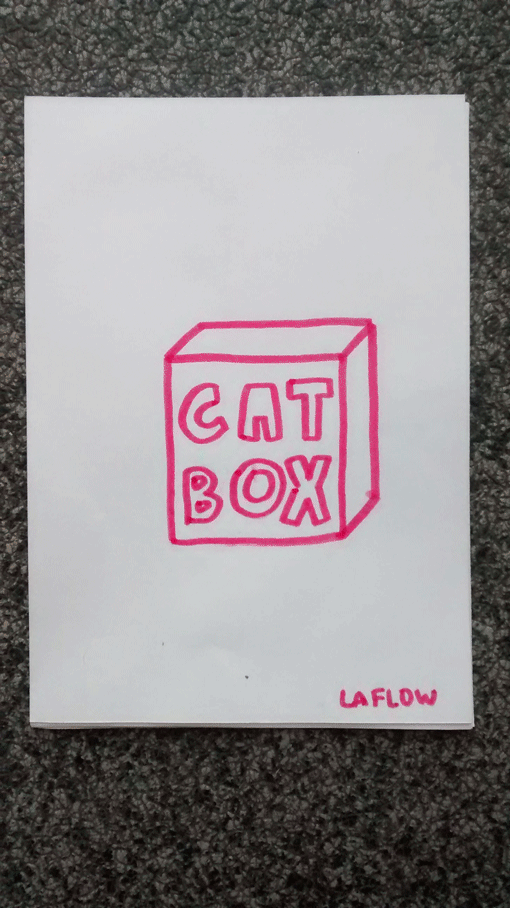 CAT
BOX
LAFLOW